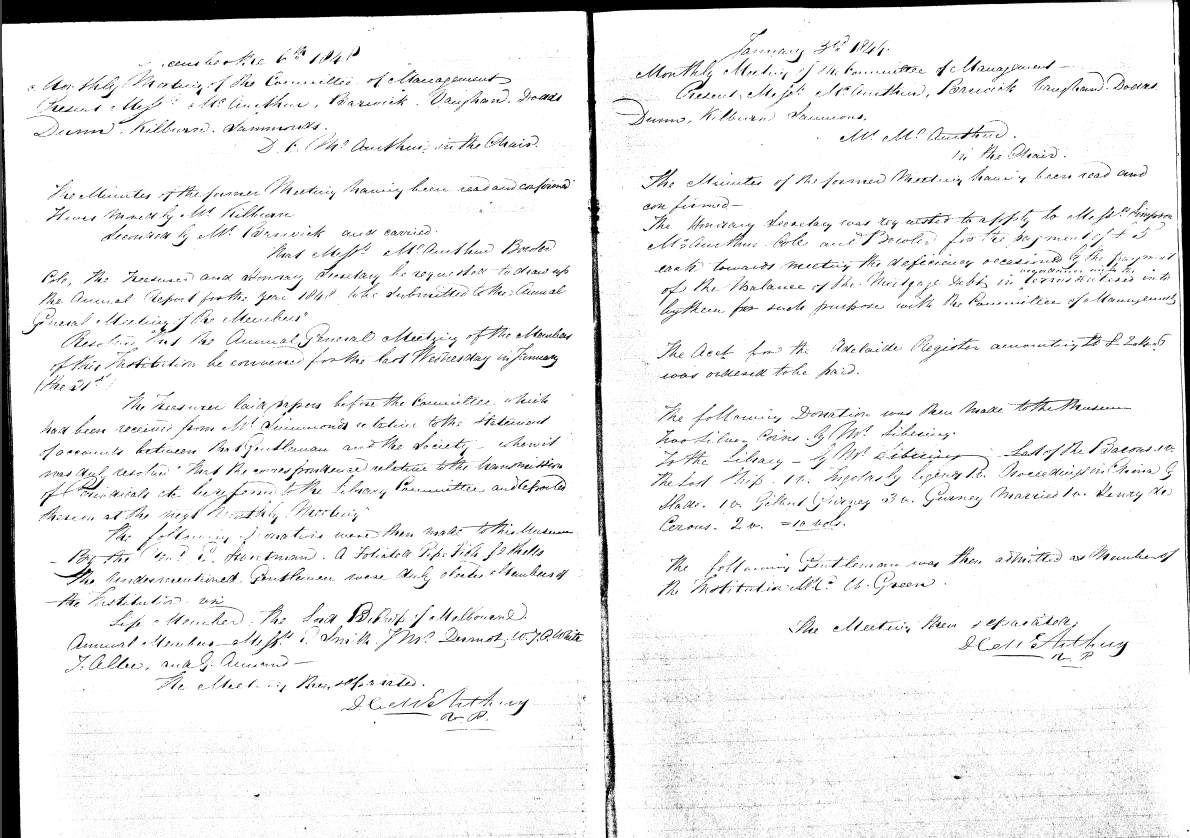 6th 1848
Monthly Meeting of the Committee of Management
Present Messrs McArthur, Barwick. Vaughan. Dodds
Dunn. Kilburn. Sammonds.
D. C. McArthur in the Chair.
The Minutes of the former Meeting having been read and confirmed
It was moved by Mr Kilburn
Seconded by Mr Barwick and carried.
That Messrs McArthur
Cole, the Treasurer and Honorary Secretary be requested to draw up
the Annual Report for the year 1848 to be submitted to the Annual
General Meeting of the Members"
Resolved that the Annual General Meeting of the Members
of this Institution be convened for the last Wednesday in January
(the 31st)
The Treasurer laid papers before the Committee which
had been received from Mr relative to the Statement
of accounts between that Gentleman and the Society - when it
was duly resolved "That the correspondence relative to the transmission
of Periodicals &c be referred to the Library Committee, and reported
thereon at the next Monthly Meeting"
The following Donations were then made to the Museum
By the
The undermentioned Gentlemen were duly elected Members of
the Institution viz
Life Member. the Lord Bishop of Melbourne
Annual Members - Messrs Smith J McDermot, W. J. A. White
T. and G.
The Meeting then separated.
D C McArthur
V. P.
January 3rd 1849.
Monthly Meeting of the Committee of Management -
Present Messrs McArthur, Barwick Vaughan. Dodds.
Dunn, Kilburn Sammons.
Mr McArthur.
in the Chair.
The Minutes of the former Meeting having been read and
confirmed -
The Honorary Secretary was requested to apply to Messrs Simpson
McArthur. Cole and for the payment of £5
each towards meeting the deficiency occasioned by the payment
of the Balance of the Mortgage Debt, in
by them for such purpose with the Committee of Management
The Acct for the Adelaide Register amounting to £
was ordered to be paid.
The following Donation was then made to the Museum
Two Silver Coins by Mr
To the Library by Mr Last of the Barons 1v.
The Lost Ship. 1v. Ingoldsby Legends 1v. Proceedings in China by
Slade. 1v. Gilbert Gurney 3v. Gurney Married 1v. Henry de
Cerons. 2v. = 10 vols.
The following Gentleman was then admitted as Member of
the Institution Mr W. Green.
The Meeting then separated,
D C McArthur
V. P.